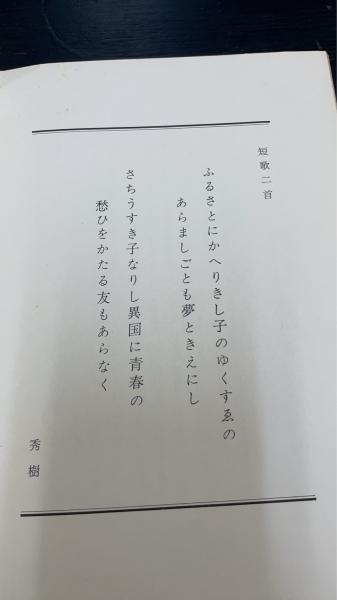 短歌二首
ふるさとにかへりきし子のゆくすゑの
あらましごとも夢ときえにし
さちうすき子なりし異国に青春の
愁ひをかたる友もあらなく
秀樹